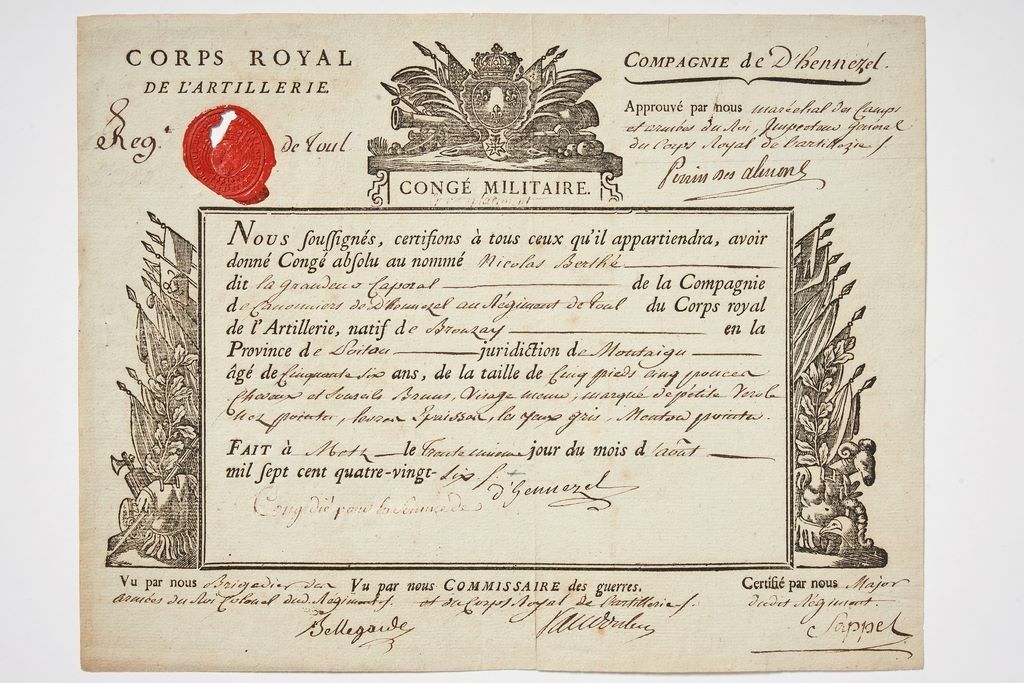 CORPS ROYAL
DE L'ARTILLERIE.
Reg.t de Toul
CONGÉ MILITAIRE.
COMPAGNIE de D'hennezel.
Approuvé par nous maréchal des Camps
et armées du Roi, Inspecteur général
du Corps Royal de l'artillerie
Nous souſſignés, certifions à tous ceux qu'il appartiendra, avoir
donné Congé abſolu au nommé Nicolas Berthé
dit la Grandeur Caporal de la Compagnie
de Canonniers de D'hennezel au Régiment de Toul du Corps royal
de l'Artillerie, natif de Brouzay en la
Province de Poitou juridiction de Montaigu
âgé de Cinquante six ans, de la taille de Cinq pieds cinq pouces
Cheveux et Sourcils Bruns, Visage menu, marqué de petite Verole
Nez pointu, levres Epaisses, les yeux gris, Menton pointu.
FAIT à Metz le Trente unieme jour du mois d'août
mil ſept cent quatre-vingt-six
d'hennezel
Congédié pour
Vu par nous Brigadier des
armées du Roi Colonel dud. Régiment
Bellegarde
Vu par nous COMMISSAIRE des guerres.
et du Corps Royal de l'artillerie
Certifié par nous Major
dudit Régiment.
Sappel